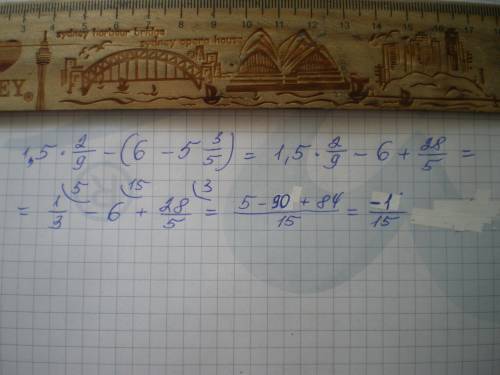 3 4 5 6 7 8 9 10 11 12 13 14 15 16 17 18
sydney harbour bridge
sydney opera house
EY.
1,5 · 2/9 − (6 − 5 3/5) = 1,5 · 2/9 − 6 + 28/5 =
= 1/3 (5 − 6 (15 + 28/5 (3 = (5 − 90 + 84)/15 = −1/15